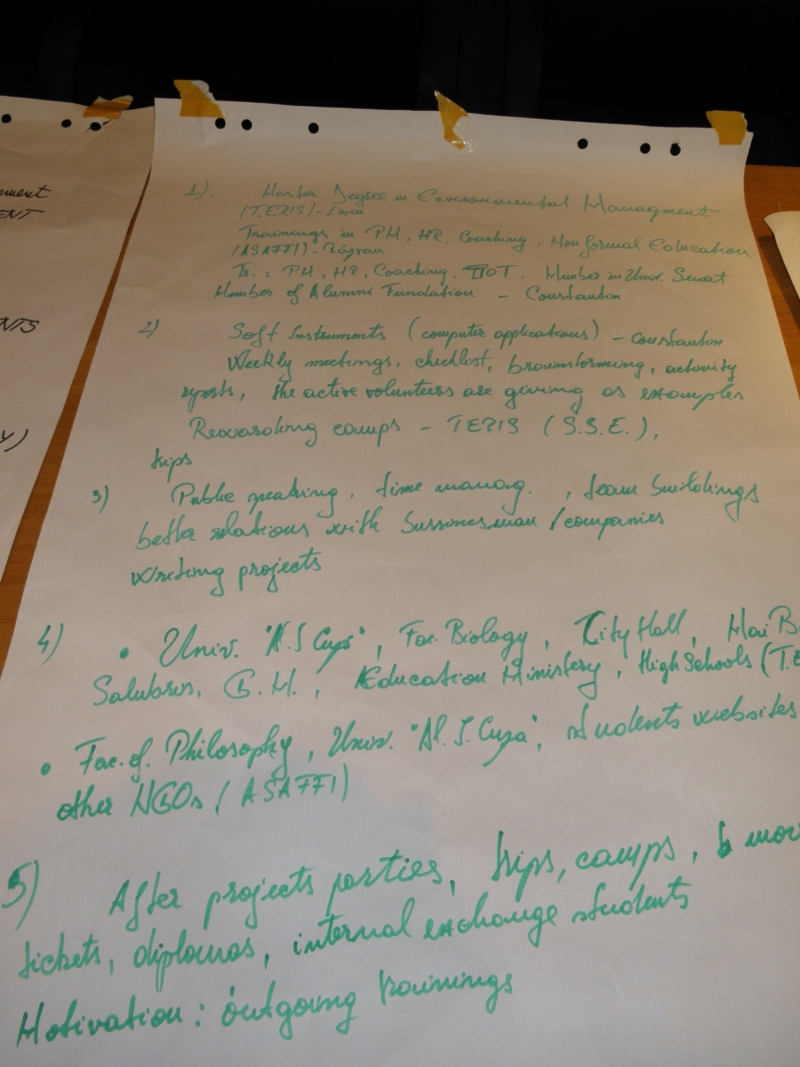 ement
ENT
NTS
Y)
1). Master Degree in Environmental Managment
(TERIS) - Livia
Trainings in P.M, HR, Coaching, Non formal Education
(ASAFFI) - Răzvan
Tr. : PM, HR, Coaching, TOT, Member in Univ. Senat
Member of Alumni Fundation - Constantin
2) Soft Instruments (computer applications) - Constantin
Weekly meetings, checklist, brainstorming, activity
reports, the active volunteers are giving as examples
Rewarding camps - TERIS (S.S.E.),
trips
3) Public speaking, time manag. , team buildings
better relations with bussinesman / companies
Writing projects
4) • Univ. "Al. I Cuza", Fac. Biology, City Hall, Mai B
Salubris, G. M., Education Ministery, High Schools (T.E
• Fac. of. Philosophy, Univ. "Al. I. Cuza", students websites
other NGOs (ASAFFI)
5) After projects parties, trips, camps, mov
tickets, diplomas, internal exchange students
Motivation : outgoing trainings